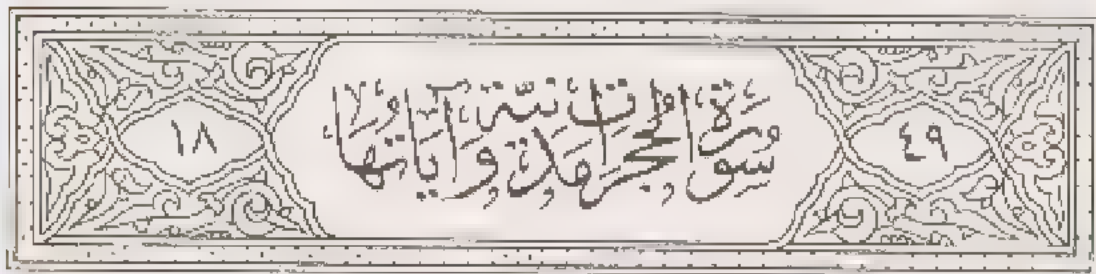 ٤٩
سُورَةُ الْحُجُرَاتِ مَدَنِيَّة وَآيَاتُهَا
١٨